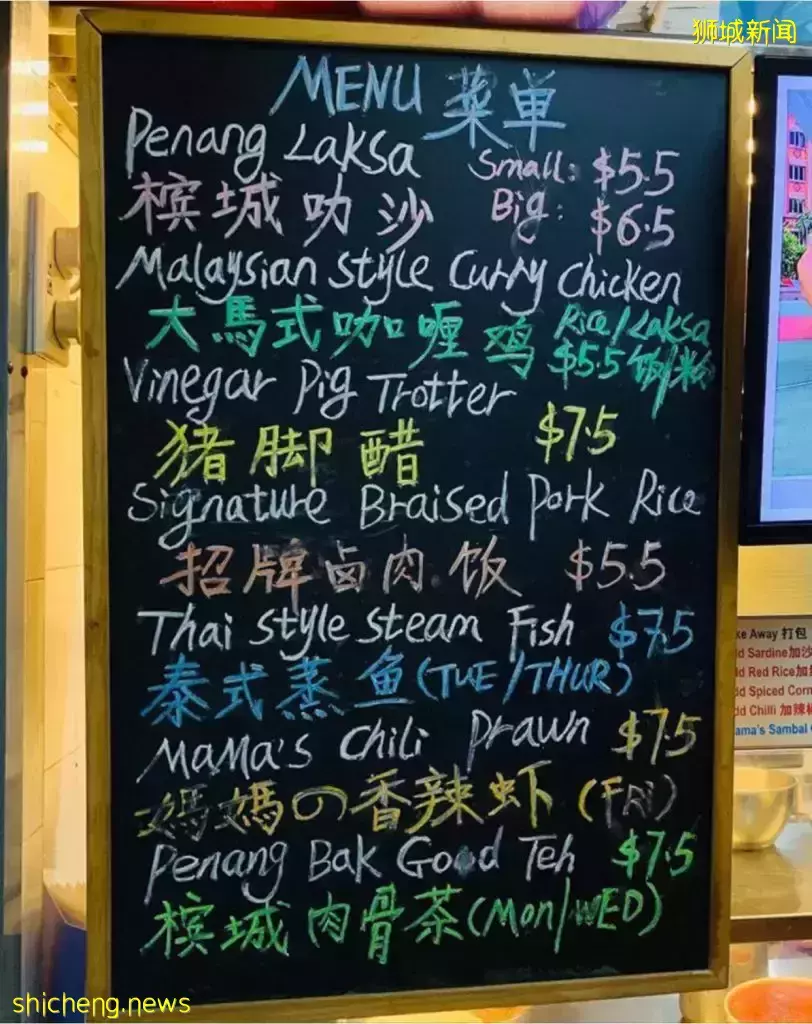 狮城新闻
MENU 菜单
Penang Laksa Small: $5.5
槟城叻沙 Big: $6.5
Malaysian Style Curry Chicken
大馬式咖喱鸡 Rice/Laksa
$5.5 饭/粉
Vinegar Pig Trotter
猪脚醋 $7.5
Signature Braised Pork Rice
招牌卤肉饭 $5.5
Thai Style Steam Fish $7.5
泰式蒸鱼(TUE/THUR)
MaMa's Chili Prawn $7.5
媽媽の香辣虾 (FRI)
Penang Bak Good Teh $7.5
槟城肉骨茶(Mon/WED)
Away 打包
Sardine加沙
Red Rice加
Spiced
Chilli 加辣
Sambal
shicheng.news